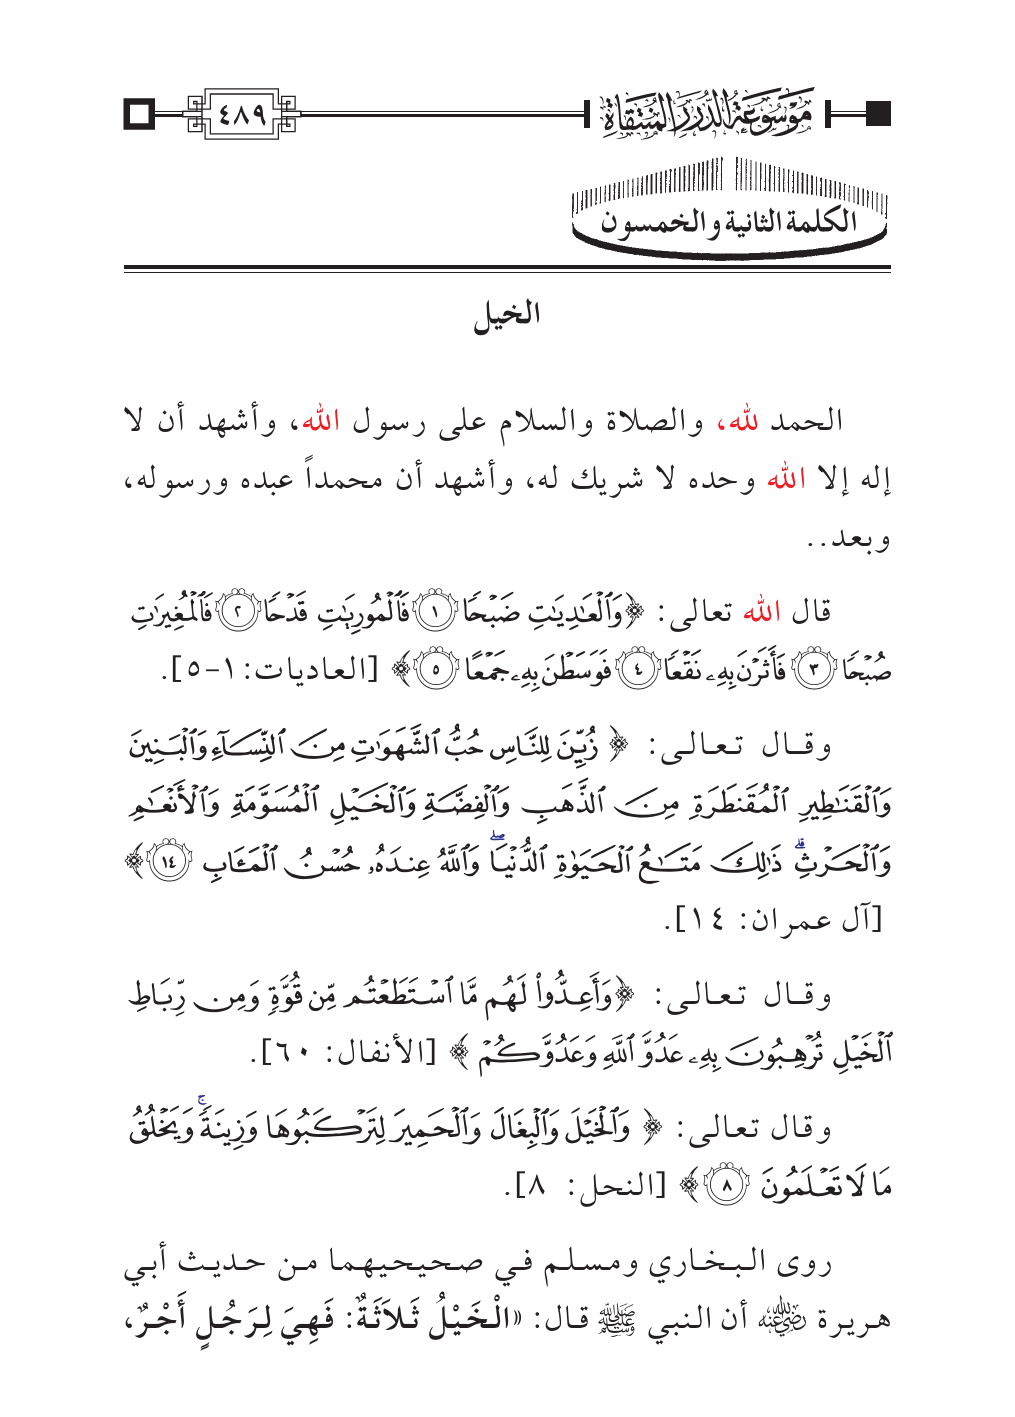 مَوْسُوعَةُ الدُّرَرِ الْمُنْتَقَاةِ
٤٨٩
الكلمة الثانية والخمسون
الخيل
الحمد لله، والصلاة والسلام على رسول الله، وأشهد أن لا
إله إلا الله وحده لا شريك له، وأشهد أن محمداً عبده ورسوله،
وبعد..
قال الله تعالى: ﴿وَٱلْعَٰدِيَٰتِ ضَبْحًا ١ فَٱلْمُورِيَٰتِ قَدْحًا ٢ فَٱلْمُغِيرَٰتِ
صُبْحًا ٣ فَأَثَرْنَ بِهِۦ نَقْعًا ٤ فَوَسَطْنَ بِهِۦ جَمْعًا ٥﴾ [العاديات: ١-٥].
وقال تعالى: ﴿زُيِّنَ لِلنَّاسِ حُبُّ ٱلشَّهَوَٰتِ مِنَ ٱلنِّسَآءِ وَٱلْبَنِينَ
وَٱلْقَنَٰطِيرِ ٱلْمُقَنطَرَةِ مِنَ ٱلذَّهَبِ وَٱلْفِضَّةِ وَٱلْخَيْلِ ٱلْمُسَوَّمَةِ وَٱلْأَنْعَٰمِ
وَٱلْحَرْثِ ۗ ذَٰلِكَ مَتَٰعُ ٱلْحَيَوٰةِ ٱلدُّنْيَا ۖ وَٱللَّهُ عِندَهُۥ حُسْنُ ٱلْمَـَٔابِ ١٤﴾
[آل عمران: ١٤].
وقال تعالى: ﴿وَأَعِدُّوا۟ لَهُم مَّا ٱسْتَطَعْتُم مِّن قُوَّةٍ وَمِن رِّبَاطِ
ٱلْخَيْلِ تُرْهِبُونَ بِهِۦ عَدُوَّ ٱللَّهِ وَعَدُوَّكُمْ﴾ [الأنفال: ٦٠].
وقال تعالى: ﴿وَٱلْخَيْلَ وَٱلْبِغَالَ وَٱلْحَمِيرَ لِتَرْكَبُوهَا وَزِينَةً ۚ وَيَخْلُقُ
مَا لَا تَعْلَمُونَ ٨﴾ [النحل: ٨].
روى البخاري ومسلم في صحيحيهما من حديث أبي
هريرة رضي الله عنه أن النبي ﷺ قال: «الْخَيْلُ ثَلاَثَةٌ: فَهِيَ لِرَجُلٍ أَجْرٌ،